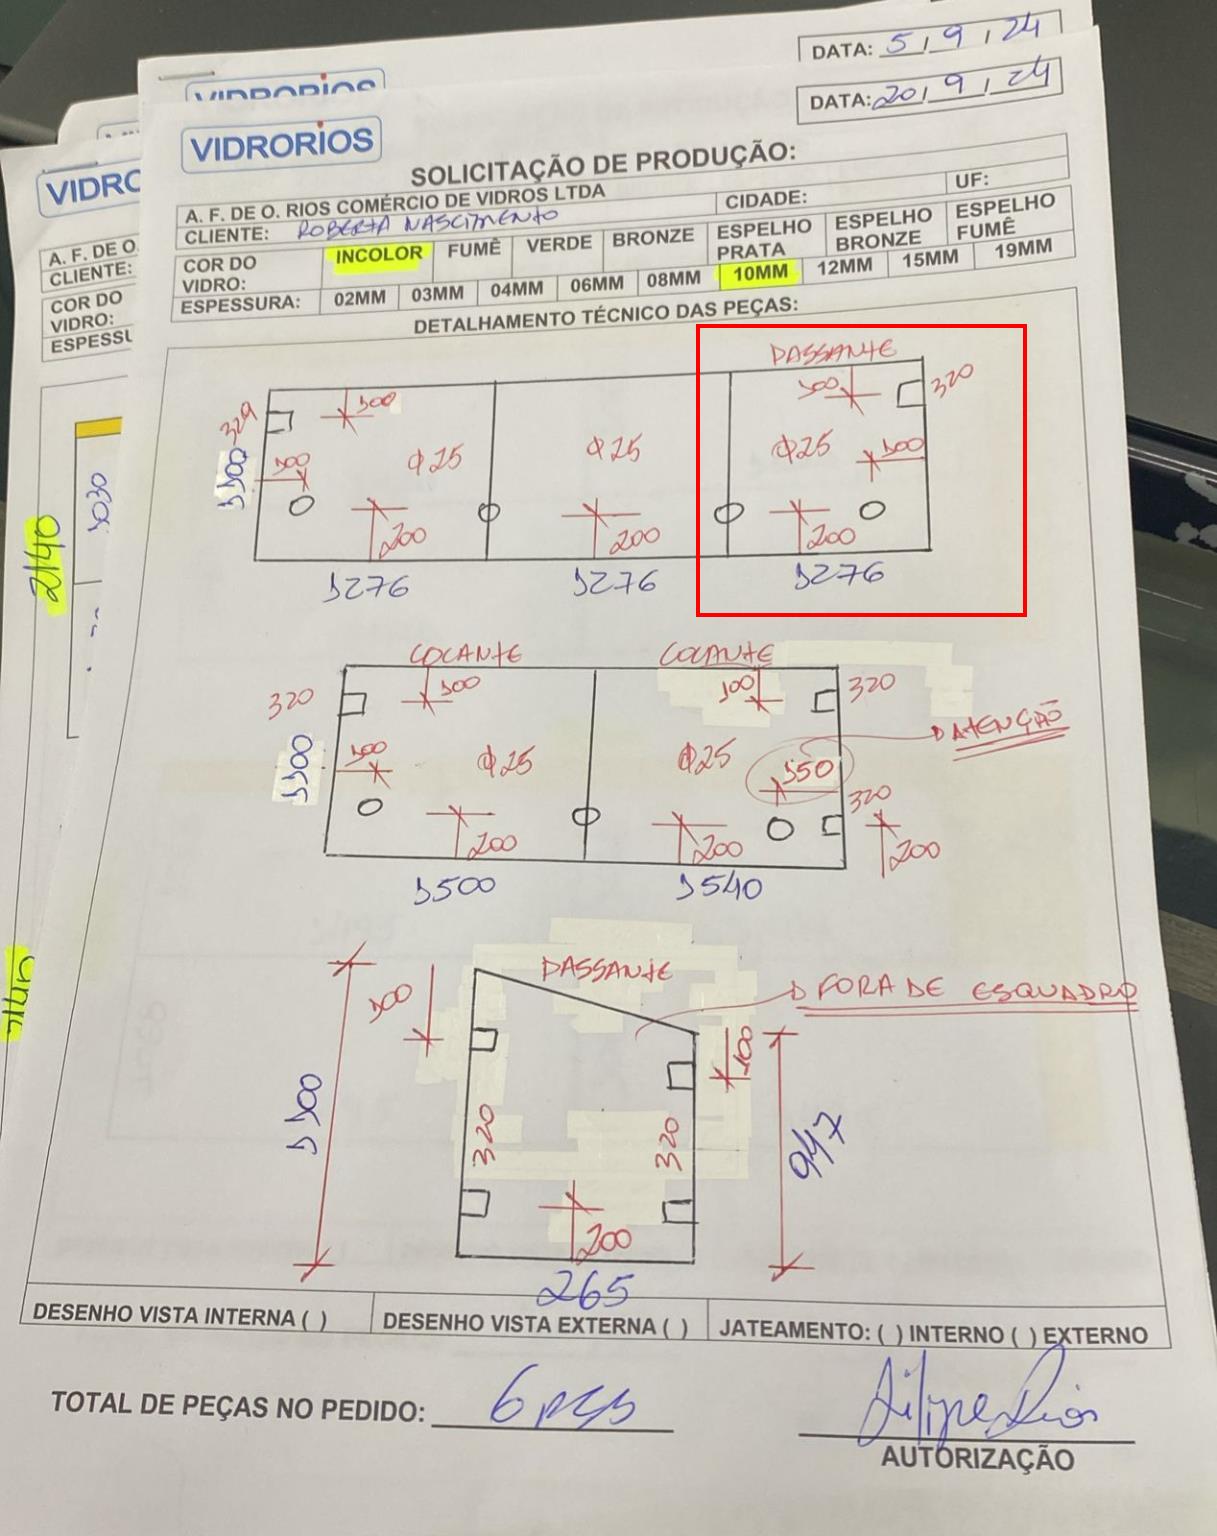 DATA: 5/9/24
DATA: 20/9/24
VIDRORIOS
VIDRORIOS
SOLICITAÇÃO DE PRODUÇÃO:
A. F. DE O. RIOS COMÉRCIO DE VIDROS LTDA
CIDADE:
UF:
CLIENTE: ROBERTA NASCIMENTO
COR DO VIDRO:
INCOLOR
FUMÊ
VERDE
BRONZE
ESPELHO PRATA
ESPELHO BRONZE
ESPELHO FUMÊ
ESPESSURA:
02MM
03MM
04MM
06MM
08MM
10MM
12MM
15MM
19MM
DETALHAMENTO TÉCNICO DAS PEÇAS:
PASSANTE
329
100
100
320
1100
100
Φ25
Φ25
Φ25
100
200
200
200
1276
1276
1276
COLANTE
COLANTE
320
100
100
320
ATENÇÃO
1100
100
Φ25
Φ25
150
320
200
200
200
1500
1540
PASSANTE
FORA DE ESQUADRO
100
100
1100
320
320
947
200
265
DESENHO VISTA INTERNA ( )
DESENHO VISTA EXTERNA ( )
JATEAMENTO: ( ) INTERNO ( ) EXTERNO
TOTAL DE PEÇAS NO PEDIDO: 6 pçs
Filipe Rios
AUTORIZAÇÃO
VIDRO
A. F. DE O.
CLIENTE:
COR DO
VIDRO:
ESPESSU
1030
2140